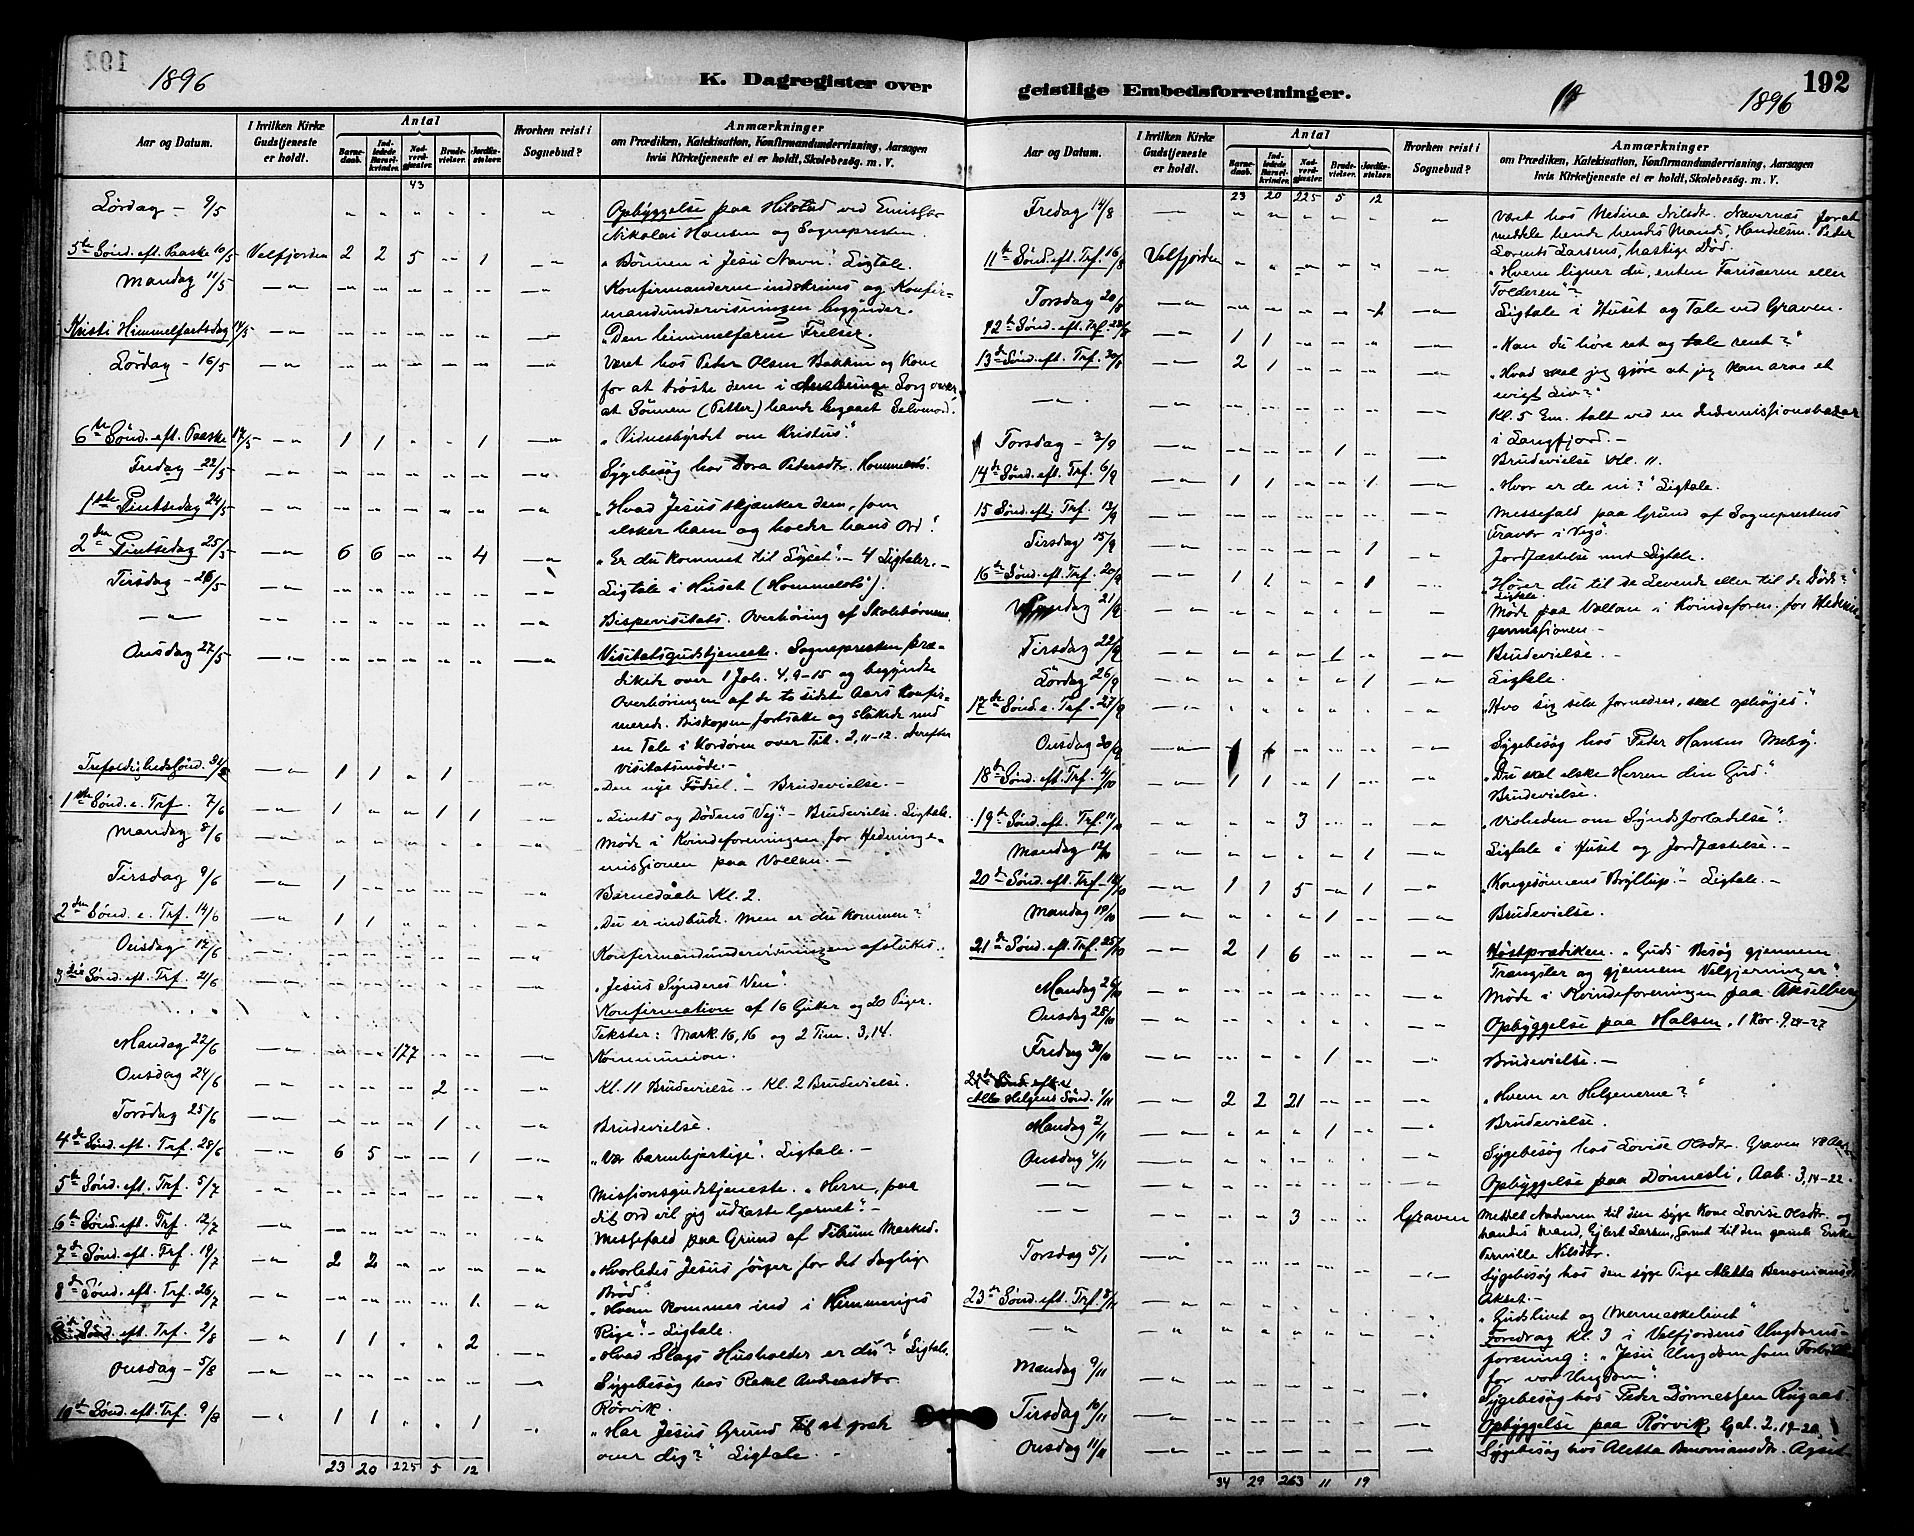 1896
K. Dagregister over
Aar og Datum.
I hvilken Kirke Gudstjeneste er holdt.
Antal
Barnedaab.
Indledede Barselkvinder.
Nadverdgjæster.
Brudevielser.
Jordfæstelser.
Hvorhen reist i Sognebud?
Anmærkninger
om Prædiken, Katekisation, Konfirmandundervisning, Aarsagen
hvis Kirketjeneste ei er holdt, Skolebesøg. m. V.
43
Lørdag - 9/5 Opbyggelse paa Hilstad ved Emissær
Nikolai Hansen og Sognepresten.
5te Sønd. eft. Paaske 10/5 Velfjorden 2 2 5 1 "Bønnen i Jesu Navn". Ligtale.
Mandag 11/5 Konfirmanderne indskrives og Konfir-
mandundervisningen begynder.
Kristi Himmelfartsdag 14/5 "Den himmelfarne Frelser."
Lørdag - 16/5 Været hos Peder Olsen Bakken og Kone
for at trøste dem i Sorg over,
at Sønnen (Petter) havde begaaet Selvmord.
6te Sønd. eft. Paaske 17/5 1 1 1 "Vidnesbyrdet om Kristus."
Fredag 22/5 Sygebesøg hos Dora Pedersdtr. Hommelstø.
1ste Pintsedag 24/5 "Hvad Jesus skjænker dem, som
elsker ham og holder hans Ord".
2den Pintsedag 25/5 6 6 4 "Er du kommet til Lyset". - 4 Ligtaler. -
Tirsdag - 26/5 Ligtale i Huset (Hommelstø).
Bispevisitats. Overhøring af Skolebørnene.
Onsdag 27/5 Visitatsgudstjeneste. Sognepresten præ-
dikede over 1 Joh. 4, 9-15 og begyndte
Overhøringen af de to sidste Aars Konfir-
merede. Biskopen fortsatte og sluttede med
en Tale i Kordøren over Tit. 2, 11-12. Derefter
Visitatsmøde. -
Trefoldighedssønd. 31/5 1 1 1 "Den nye Fødsel". - Brudevielse. -
1ste Sønd. e. Trf. 7/6 1 1 1 "Livets og Dødens Vej". - Brudevielse. Ligtale.
Mandag 8/6 Møde i Kvindeforeningen for Hedninge-
missionen paa Vollan. -
Tirsdag 9/6 1 Barnedaab Kl. 2.
2den Sønd. e. Trf. 14/6 1 1 "Du er indbudt. Men er du kommen?"
Onsdag 17/6 Konfirmandundervisningen afsluttes.
3die Sønd. eft. Trf. 21/6 "Jesus Synderes Ven".
Konfirmation af 16 Gutter og 20 Piger.
Tekster: Mark. 16, 16 og 2 Tim. 3, 14.
Mandag 22/6 177 Kommunion.
Onsdag 24/6 2 Kl. 11 Brudevielse - Kl. 2 Brudevielse.
Torsdag 25/6 1 Brudevielse.
4de Sønd. eft. Trf. 28/6 6 5 1 "Vær barmhjertige". Ligtale. -
5te Sønd. eft. Trf. 5/7 Missionsgudstjeneste. "Herre, paa
dit Ord vil jeg udkaste Garnet". -
6te Sønd. eft. Trf. 12/7 Messefald paa Grund af Tilrum Marked.
7de Sønd. eft. Trf. 19/7 2 2 "Hvorledes Jesus sørger for det daglige
Brød".
8de Sønd. eft. Trf. 26/7 1 "Hvem kommer ind i Himmeriges
Rige". - Ligtale.
Sønd. eft. Trf. 2/8 1 1 2 "Hvad Slags Husholder er du?" Ligtale.
Onsdag - 5/8 Sygebesøg hos Rakel Andreasdtr
Rørvik.
10de Sønd. eft. Trf. 9/8 1 1 1 "Har Jesus Grund til at græde
over dig?" Ligtale.
23 20 225 5 12
geistlige Embedsforretninger.
1896
192
Aar og Datum.
I hvilken Kirke Gudstjeneste er holdt.
Antal
Barnedaab.
Indledede Barselkvinder.
Nadverdgjæster.
Brudevielser.
Jordfæstelser.
Hvorhen reist i Sognebud?
Anmærkninger
om Prædiken, Katekisation, Konfirmandundervisning, Aarsagen
hvis Kirketjeneste ei er holdt, Skolebesøg. m. V.
23 20 225 5 12
Fredag 14/8 Været hos Medina Nilsdtr. Nævernes for at
meddele hende hendes Mands, Handelsm. Peder
Lorents Larsens, hastige Død.
11te Sønd. eft. Trf. 16/8 Velfjorden "Hvem ligner du, enten Farisæeren eller
Tolderen"?
Torsdag 20/8 Ligtale i Huset og Tale ved Graven.
12te Sønd. eft. Trf. 1 1 "Kan du høre ret og tale rent?"
13de Sønd. eft. Trf. 30/8 2 1 "Hvad skal jeg gjøre at jeg kan arve et
evigt Liv?"
Kl. 5 Em. talt ved en Indremissionsbazar
i Langfjord. -
Torsdag - 3/9 1 Brudevielse Kl. 11.
14de Sønd. eft. Trf. 6/9 1 1 1 "Hvor er de ni?" Ligtale.
15 Sønd. eft. Trf. 13/9 Messefald paa Grund af Sogneprestens
Fravær i Vegø.
Tirsdag 15/9 1 Jordfæstelse med Ligtale.
16te Sønd. eft. Trf. 20/9 1 1 1 "Hører du til de Levende eller til de Døde?"
Ligtale.
Mandag 21/9 Møde paa Vollan i Kvindeforen. for Hednin-
gemissionen -
Tirsdag 22/9 1 Brudevielse.
Lørdag 26/9 1 Ligtale.
17de Sønd. e. Trf. 27/9 "Hvo sig selv fornedrer, skal ophøjes".
Onsdag 30/9 Sygebesøg hos Peder Hansen Mebø.
18de Sønd. eft. Trf. 4/10 1 1 1 "Du skal elske Herren din Gud."
Brudevielse.
19de Sønd. eft. Trf. 11/10 3 "Visheden om Syndsforladelse".
Mandag 12/10 1 Ligtale i Huset og Jordfæstelse. -
20de Sønd. eft. Trf. 18/10 1 1 5 1 "Kongesønnens Bryllup". - Ligtale. -
Mandag 19/10 1 Brudevielse.
21de Sønd. eft. Trf. 25/10 2 1 6 Høstprædiken. "Guds Besøg gjennem
Trængsler og gjennem Velgjerninger"
Mandag 26/10 Møde i Kvindeforeningen paa Akselberg
Onsdag 28/10 Opbyggelse paa Halsen, 1 Kor. 9, 24-27
Fredag 30/10 1 Brudevielse. -
22de Sønd. eft.
Alle Helgens Sønd. 1/11 2 2 21 "Hvem er Helgenerne?"
Mandag 2/11 1 Brudevielse.
Onsdag 4/11 Sygebesøg hos Lovise Olsdtr. Graven 48 Aar
Opbyggelse paa Dønnesli, Aab. 3, 14-22.
3 Graven Meddelt Nadveren til den syge Kone Lovise Olsdtr. og
hendes Mand, Ejlert Larsen, samt til den gamle Enke
Pernille Nilsdtr.
Torsdag 5/1 Sygebesøg hos den syge Pige Aletta Benoniansdtr
Akset. -
23de Sønd. eft. Trf. 8/11 "Gudslivet og Menneskelivet"
Foredrag Kl. 3 i Velfjordens Ungdoms-
forening: "Jesu Ungdom som Forbillede
for vor Ungdom".
Mandag 9/11 Sygebesøg hos Peder Dønnessen Rugaas.
Tirsdag 10/11 Opbyggelse paa Rørvik Gal. 2, 19-20
Onsdag 11/11 Sygebesøg hos Aletta Benoniansdtr. Agset
34 29 263 11 19